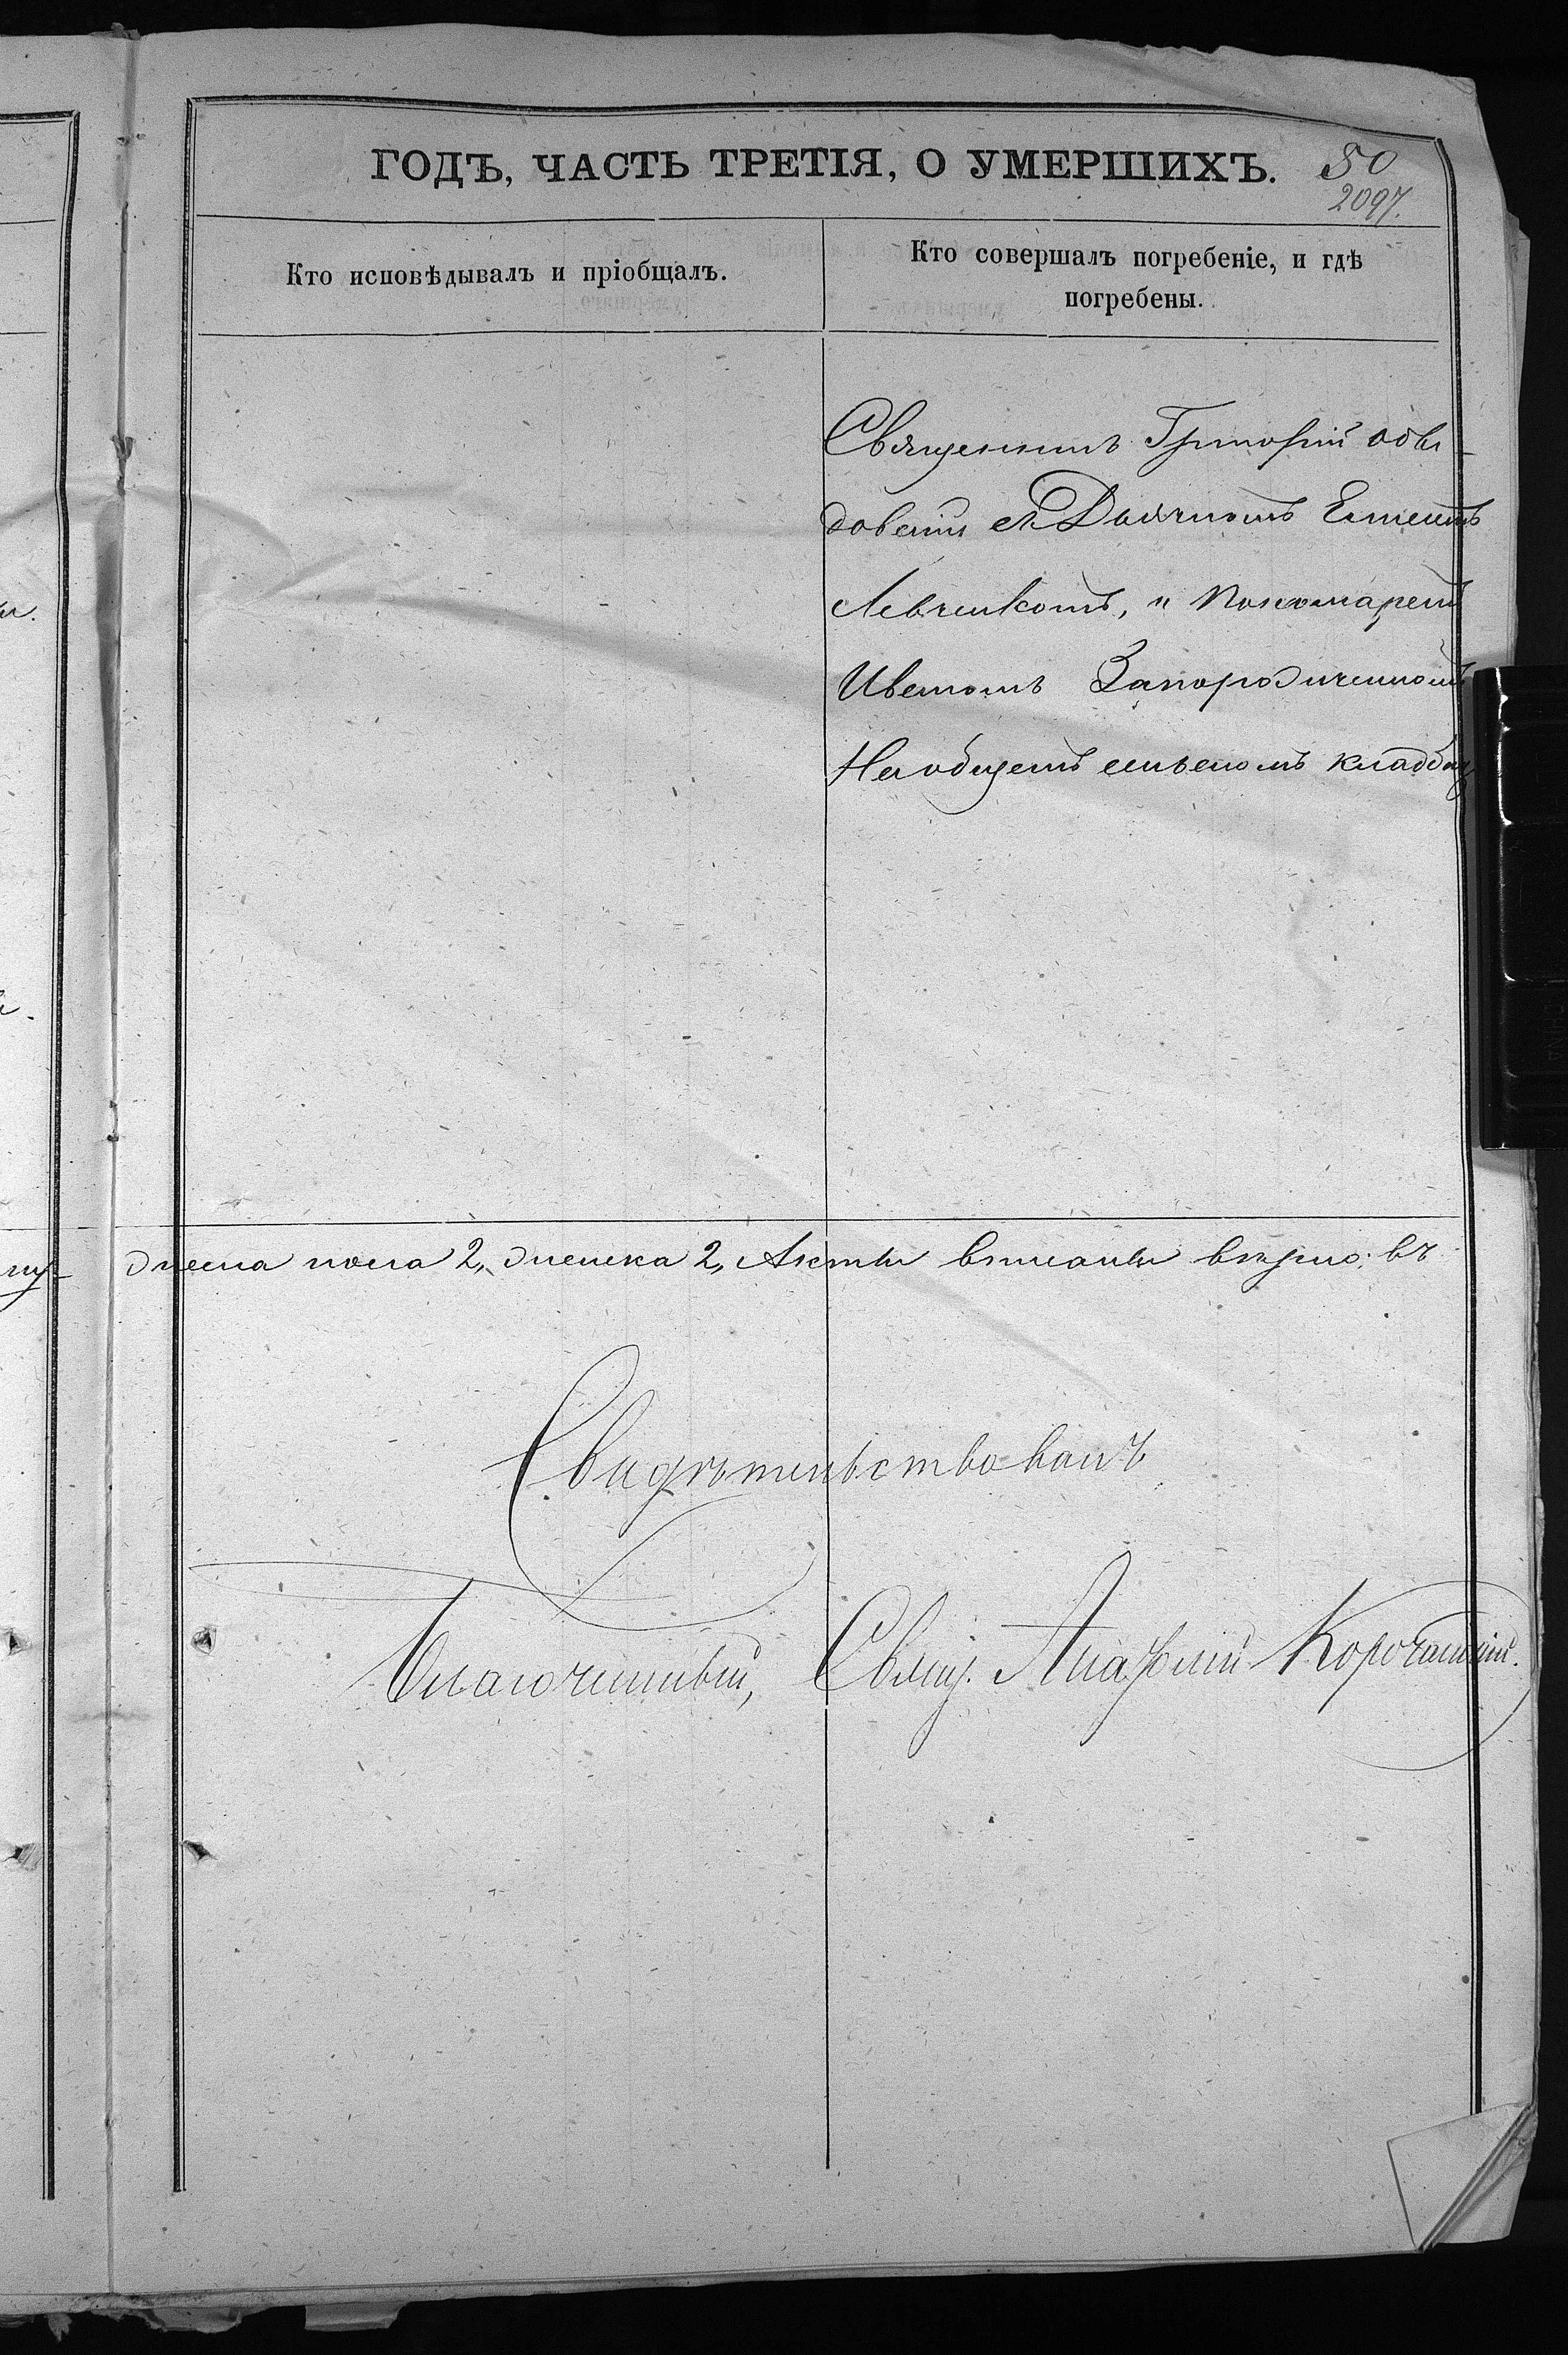 ГОДЪ, ЧАСТЬ ТРЕТІЯ, О УМЕРШИХЪ. 50
2097.
Кто исповѣдывалъ и пріобщалъ.
Кто совершалъ погребеніе, и гдѣ
погребены.
Священникъ Григорій
съ Дьячкомъ
Левченкомъ, и Пономаремъ
Иваномъ
На общемъ кладбищ
пола 2, женска 2, Акты вписаны вѣрно; въ
Свидѣтельствовалъ
Благочинный, Свящ. Корочанскій.